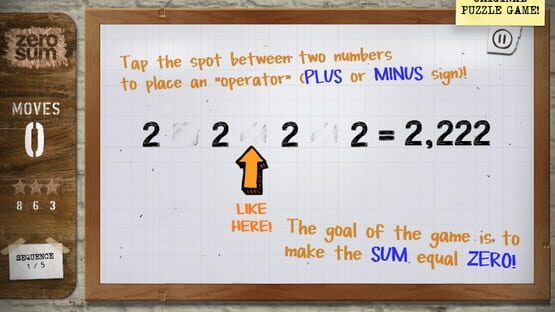 ORIGINAL
PUZZLE GAME!
zero
sum
MOVES
0
8 6 3
SEQUENCE
1/5
Tap the spot between two numbers
to place an "operator" (PLUS or MINUS sign)!
2 2 2 2 = 2,222
LIKE
HERE!
The goal of the game is to
make the SUM equal ZERO!